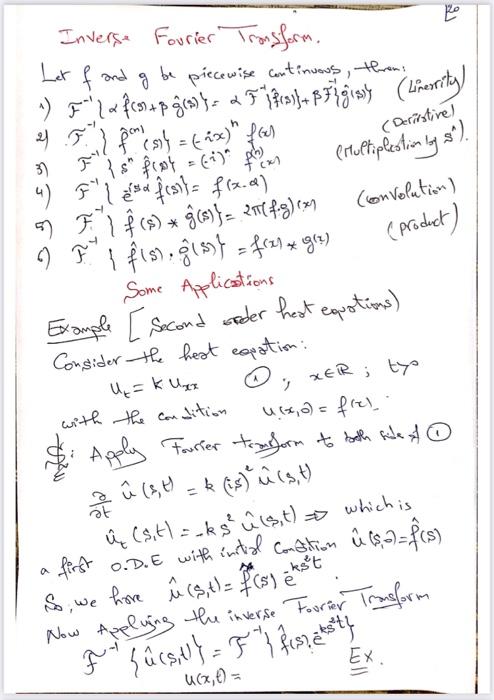 20
Inverse Fourier Transform.
Let f and g be piecewise continuous, then:
1) F⁻¹{α f̂(s) + β ĝ(s)} = α F⁻¹{f̂(s)} + β F⁻¹{ĝ(s)} (Linearity)
2) F⁻¹{f̂⁽ⁿ⁾(s)} = (-ix)ⁿ f(x) (Derivative)
3) F⁻¹{sⁿ f̂(s)} = (-i)ⁿ f⁽ⁿ⁾(x) (Multiplication by sⁿ)
4) F⁻¹{e^{isα} f̂(s)} = f(x-α)
5) F⁻¹{f̂(s) * ĝ(s)} = 2π(f.g)(x) (convolution)
6) F⁻¹{f̂(s) . ĝ(s)} = f(x) * g(x) (product)
Some Applications
Example [Second order heat equations)
Consider the heat equation:
u_t = k u_xx ①, x∈ℝ ; t>0
with the condition u(x,0) = f(x).
Apply Fourier transform to both side of ①
∂/∂t û(s,t) = k (is)² û(s,t)
û_t(s,t) = -ks² û(s,t) ⇒ which is
a first O.D.E with initial condition û(s,0) = f̂(s)
So, we have û(s,t) = f̂(s) e^{-ks²t}
Now Applying the inverse Fourier Transform
F⁻¹{û(s,t)} = F⁻¹{f̂(s). e^{-ks²t}}
u(x,t) = Ex.